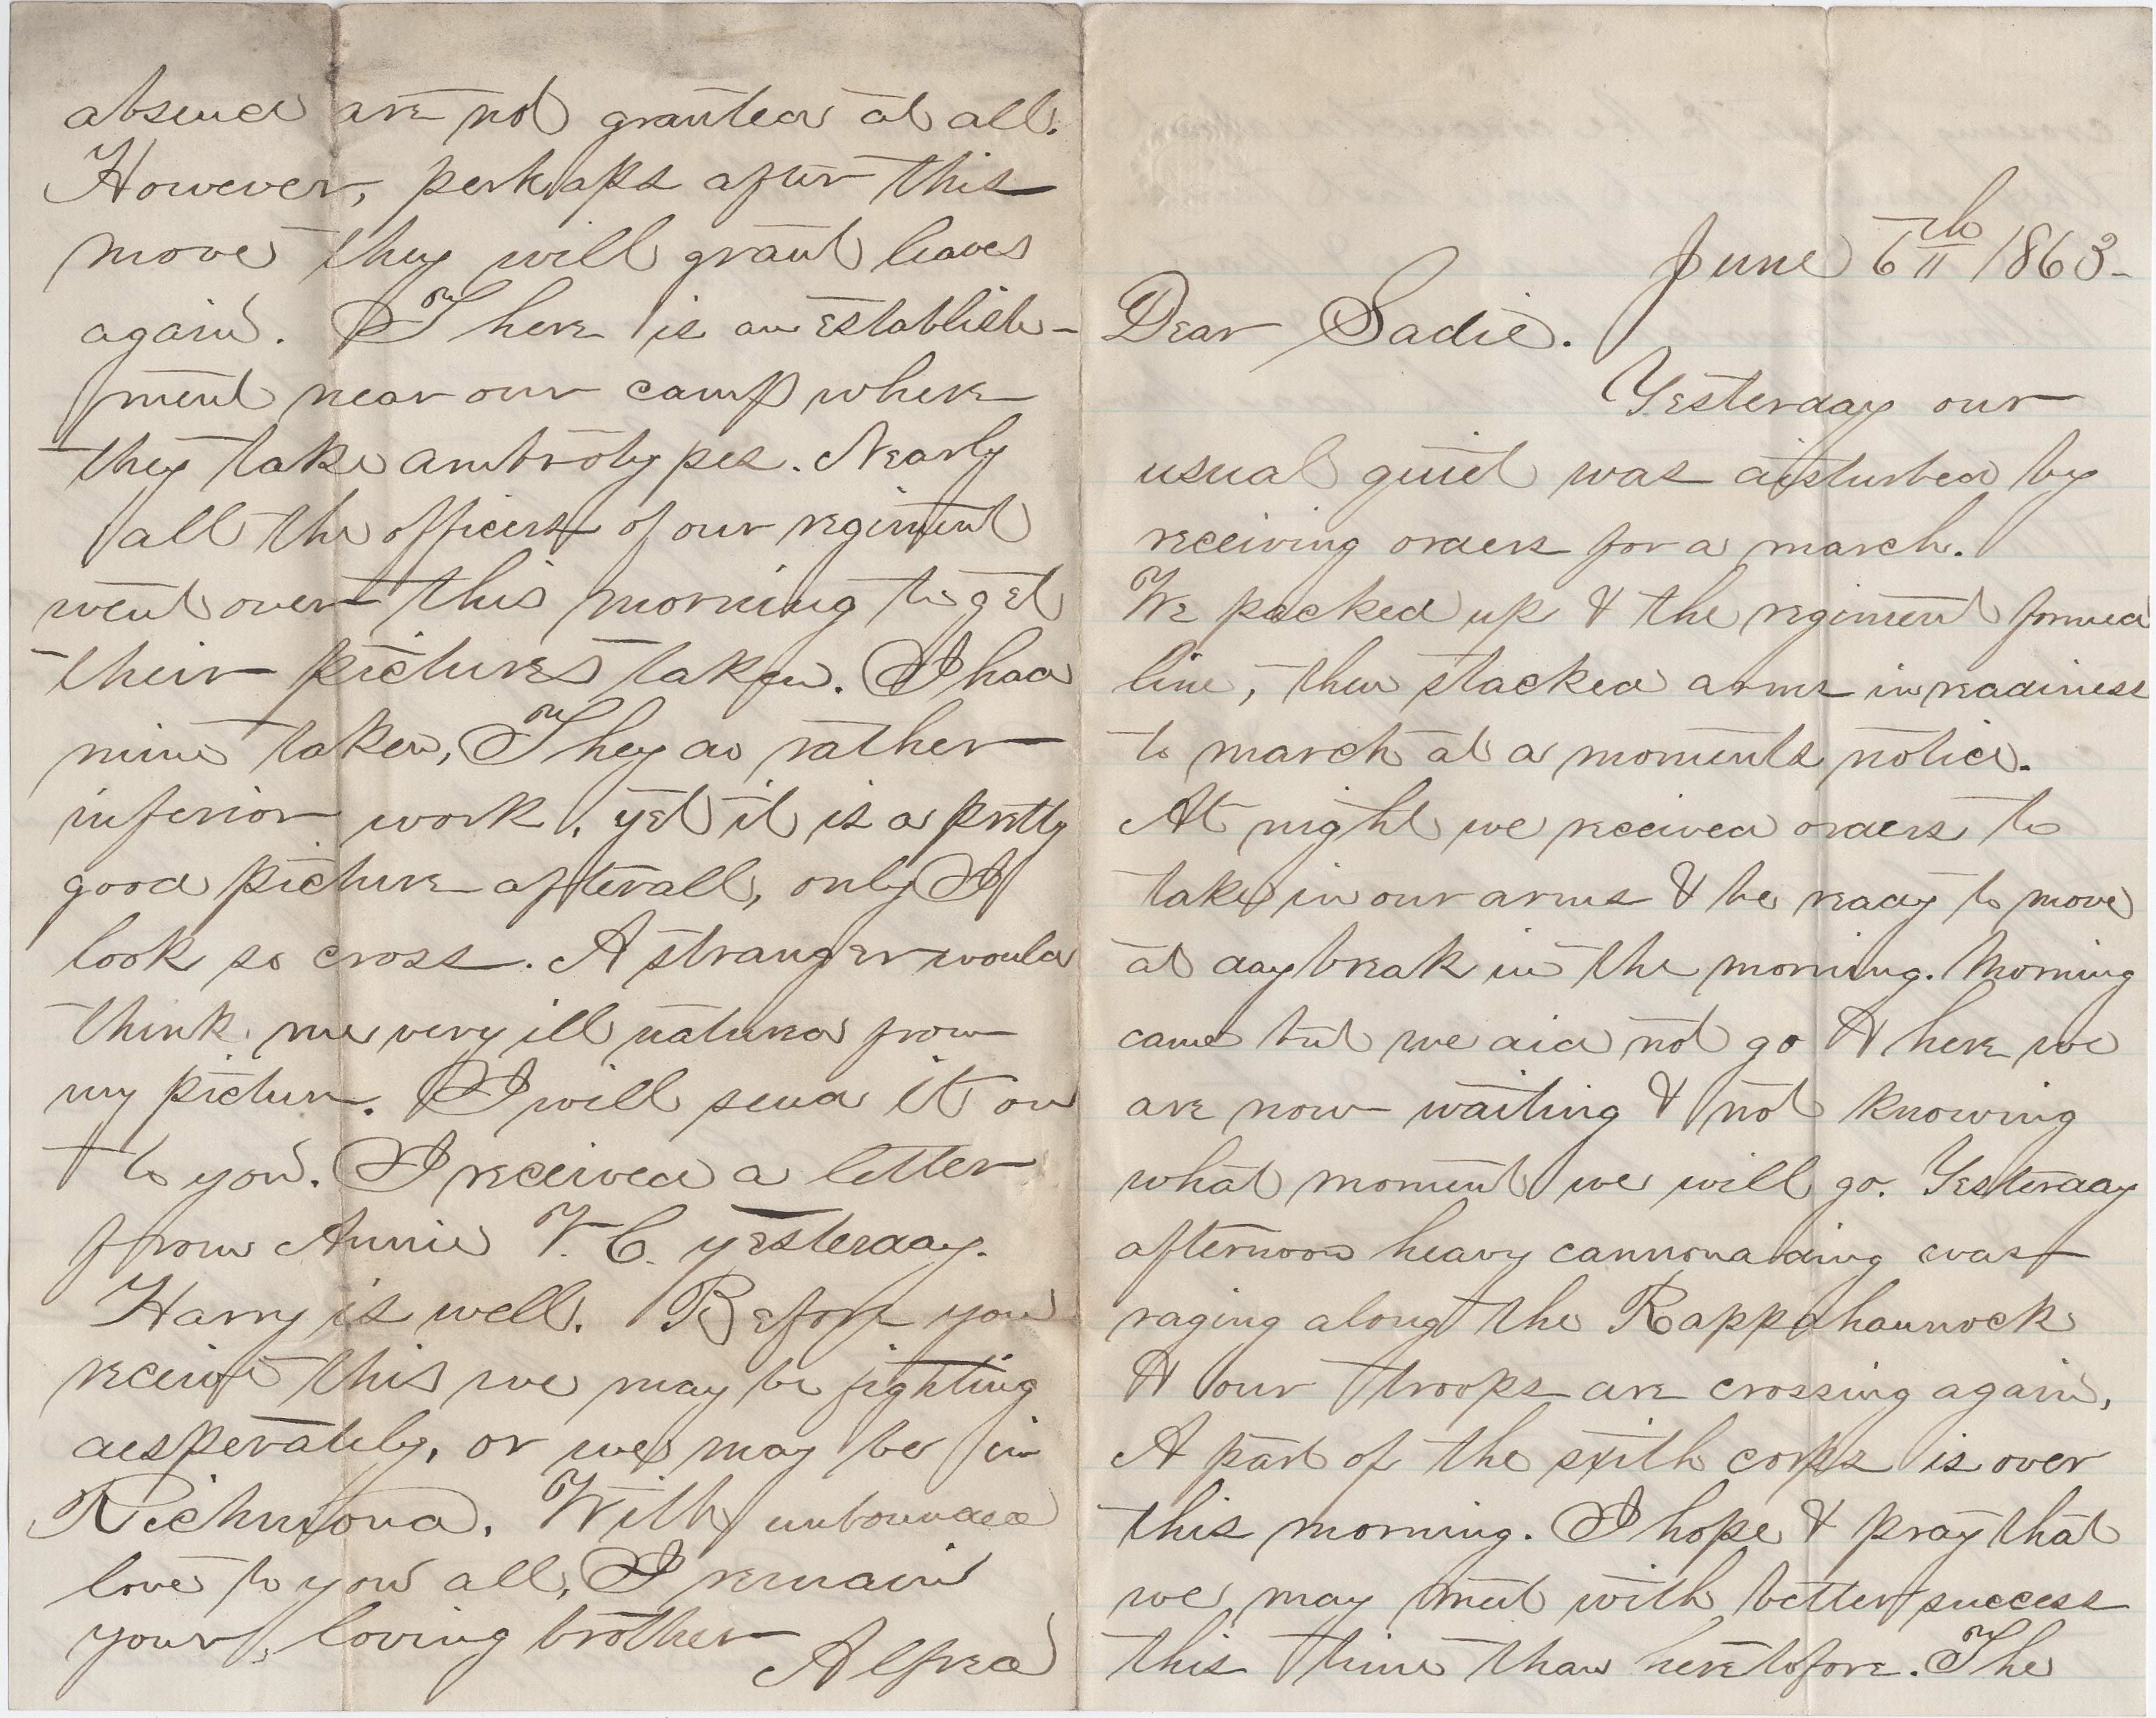 June 6th 1863-
Dear Sadie.
Yesterday our
usual quiet was disturbed by
receiving orders for a march.
We packed up & the regiment formed
line, then stacked arms in readiness
to march at a moments notice.
At night we received orders to
take in our arms & be ready to move
at daybreak in the morning. Morning
came but we did not go & here we
are now waiting & not knowing
what moment we will go. Yesterday
afternoon heavy cannonading was
raging along the Rappahannock
& our troops are crossing again,
A part of the sixth corps is over
this morning. I hope & pray that
we may meet with better success
this time than heretofore. The
absence are not granted at all.
However, perhaps after this
move they will grant leaves
again. There is an establish-
ment near our camp where
they take ambrotypes. Nearly
all the officers of our regiment
went over this morning to get
their pictures taken. I had
mine taken, They do rather
inferior work, yet it is a pretty
good picture afterall, only I
look so cross. A stranger would
think me very ill natured from
my picture. I will send it on
to you. I received a letter
from Annie V. C. yesterday.
Harry is well. Before you
receive this we may be fighting
desperately, or we may be in
Richmond. With unbounded
love to you all, I remain
your loving brother
Alfred